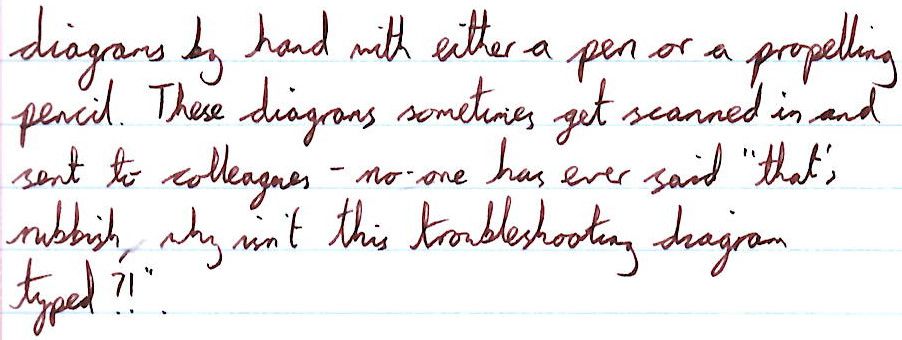 diagrams by hand with either a pen or a propelling
pencil. These diagrams sometimes get scanned in and
sent to colleagues - no-one has ever said "that's
rubbish, why isn't this troubleshooting diagram
typed?!".